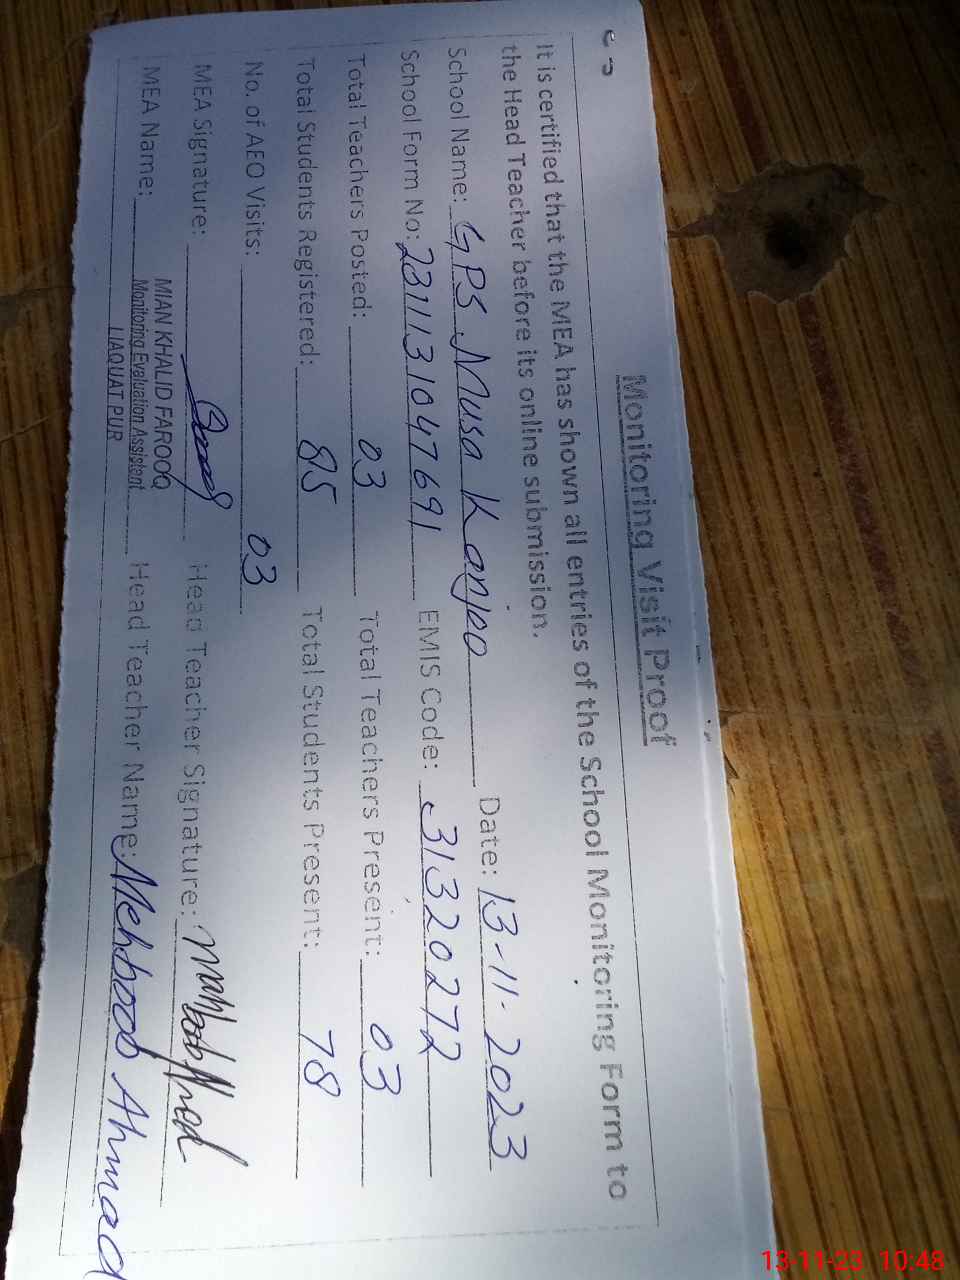 Monitoring Visit Proof
It is certified that the MEA has shown all entries of the School Monitoring Form to
the Head Teacher before its online submission.
School Name: GPS Musa Date: 13-11-2023
School Form No: 2311131047691 EMIS Code: 31320272
Total Teachers Posted: 03 Total Teachers Present: 03
Total Students Registered: 85 Total Students Present: 78
No. of AEO Visits: 03
MEA Signature: Head Teacher Signature:
MIAN KHALID FAROOQ
MEA Name: Monitoring Evaluation Assistent Head Teacher Name: Mehboob Ahmad
LIAQUAT PUR
13-11-23 10:48